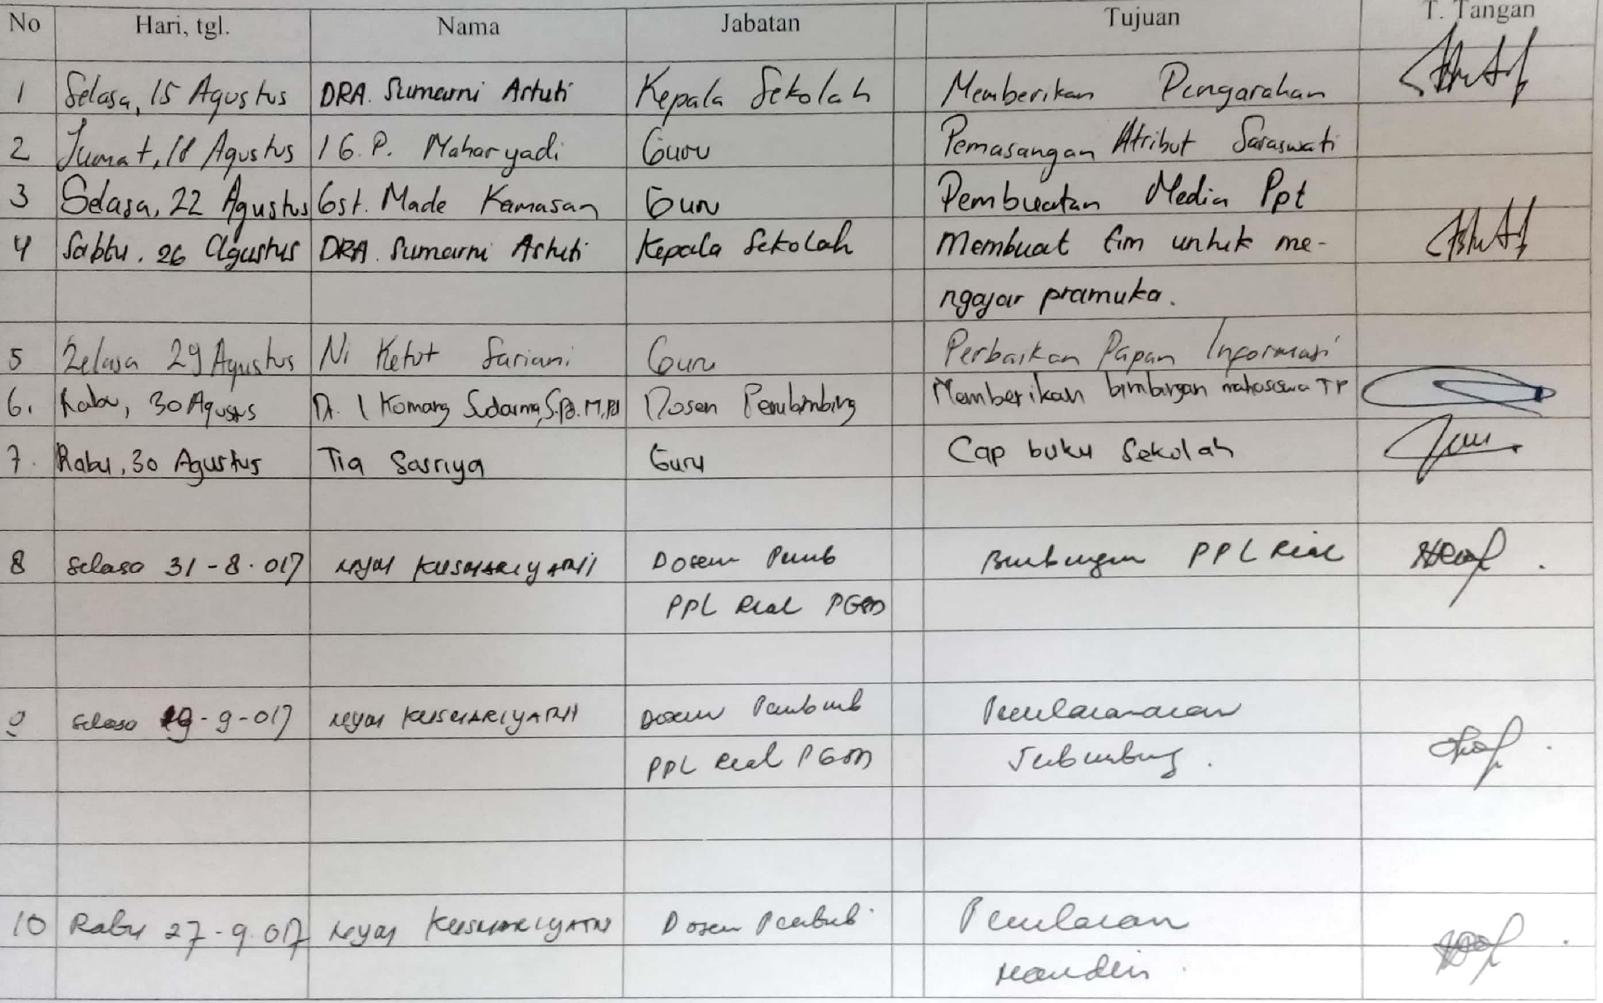 No Hari, tgl. Nama Jabatan Tujuan T. Tangan
1 Selasa, 15 Agustus DRA. Sumarni Astuti Kepala Sekolah Memberikan Pengarahan
2 Jumat, 18 Agustus I G. P. Maharyadi Guru Pemasangan Atribut Saraswati
3 Selasa, 22 Agustus Gst. Made Kamasan Guru Pembuatan Media Ppt
4 Sabtu, 26 Agustus DRA. Sumarni Astuti Kepala Sekolah Membuat tim untuk me-
ngajar pramuka.
5 Selasa 29 Agustus Ni Ketut Sariani Guru Perbaikan Papan Informasi
6. Rabu, 30 Agustus Dr. I Komang Sudarma, S.Pd. M.Pd Dosen Pembimbing Memberikan bimbingan mahasiswa TP
7. Rabu, 30 Agustus Tia Sasriya Guru Cap buku Sekolah
8 Selasa 31-8-017 KUSMARIYATNI Dosen Pemb Bimbingan PPL Real
PPL Real PGSD
9 Selasa 19-9-017 KUSMARIYATNI Dosen Pembimb
PPL Real PGSD Terbimbing.
10 Rabu 27-9-017 KUSMARIYATNI Dosen Pembimb Penilaian
Mandiri.